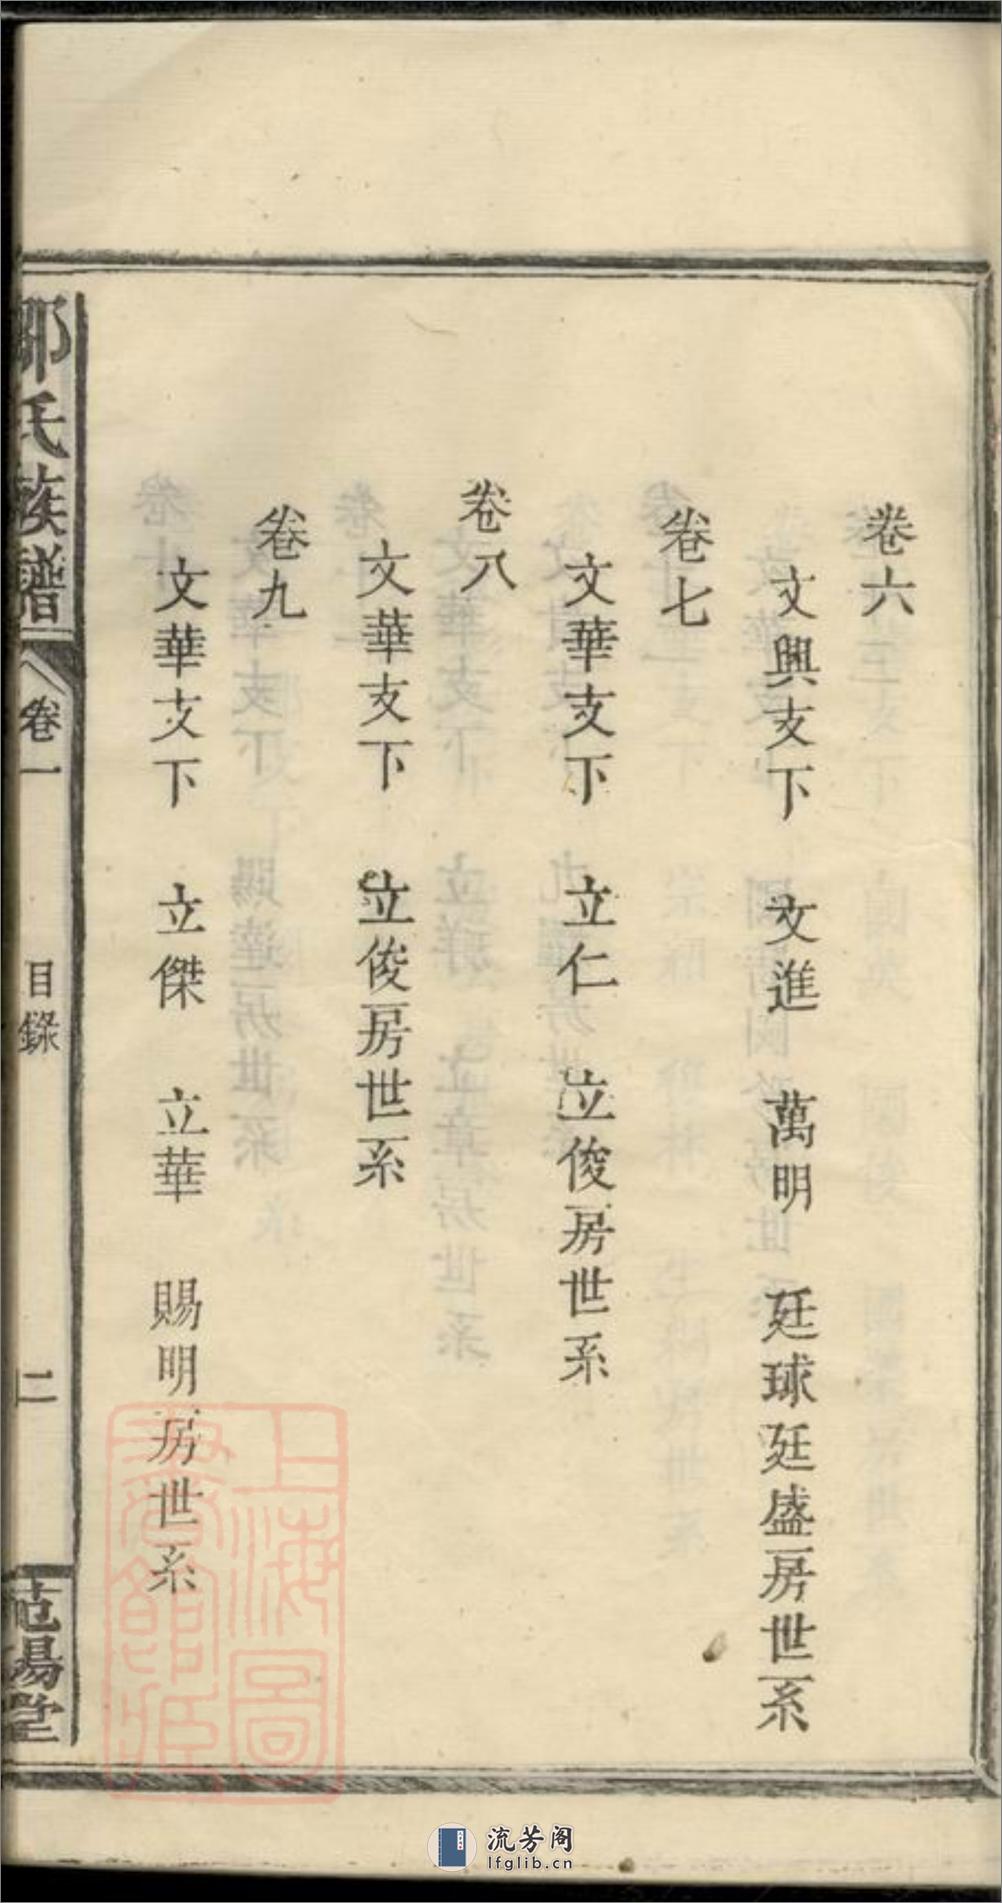 卷六
文興支下　文進　萬明　廷球廷盛房世系
卷七
文華支下　立仁　立俊房世系
卷八
文華支下　立俊房世系
卷九
文華支下　立傑　立華　賜明房世系
鄒氏族譜
卷一
目錄
二
范陽堂
上海圖書館藏
流芳阁
lfglib.cn